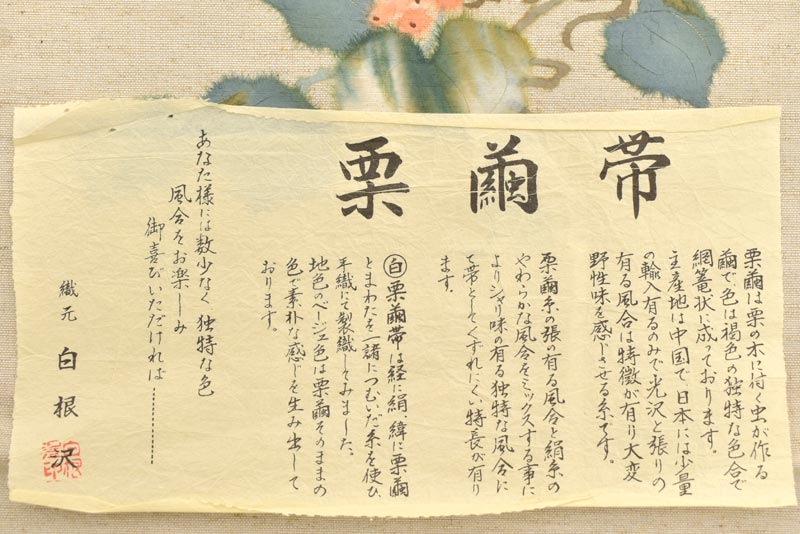 栗繭帯
栗繭は栗の木に付く虫が作る
繭で、色は褐色の独特な色合で
網篭状に成っております。
主産地は中国で、日本には少量
の輸入有るのみで光沢と張りの
有る風合は特徴が有り大変
野性味を感じさせる糸です。
栗繭糸の張の有る風合と絹糸の
やわらかな風合をミックスする事に
よりシャリ味の有る独特な風合に
て帯としてくずれにくい特長が有り
ます。
㊂栗繭帯は経に絹、緯に栗繭
とまわたを一諸につむいだ糸を使ひ、
手織にて製織してみました。
地色のベージュ色は栗繭そのままの
色で素朴な感じを生み出して
おります。
あなた様には数少なく独特な色
風合をお楽しみ
御喜びいただければ…………
織元
白根沢